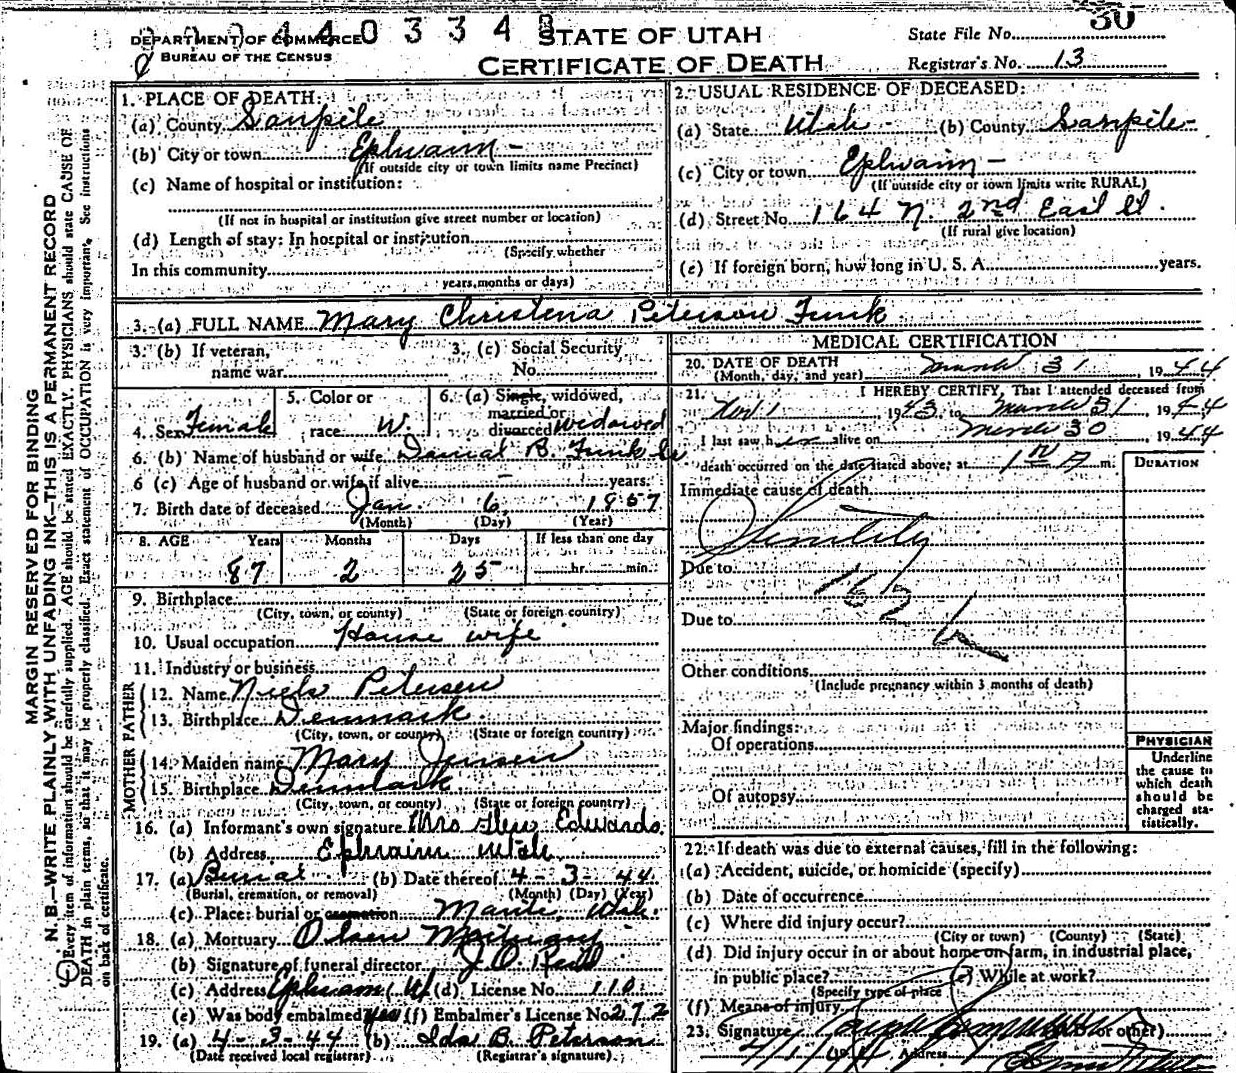 30
0 3 3 4
DEPARTMENT OF COMMERCE
BUREAU OF THE CENSUS
STATE OF UTAH
CERTIFICATE OF DEATH
State File No.
Registrar's No. 13
MARGIN RESERVED FOR BINDING
N. B.—WRITE PLAINLY WITH UNFADING INK—THIS IS A PERMANENT RECORD
Every item of information should be carefully supplied. AGE should be stated EXACTLY. PHYSICIANS should state CAUSE OF
DEATH in plain terms, so that it may be properly classified. Exact statement of OCCUPATION is very important. See instructions
on back of certificate.
1. PLACE OF DEATH:
(a) County Sanpete
(b) City or town Ephraim -
(If outside city or town limits name Precinct)
(c) Name of hospital or institution:
(If not in hospital or institution give street number or location)
(d) Length of stay: In hospital or institution
(Specify whether
In this community
years, months or days)
2. USUAL RESIDENCE OF DECEASED:
(a) State Utah - (b) County Sanpete-
(c) City or town Ephraim -
(If outside city or town limits write RURAL)
(d) Street No. 164 N. 2nd East
(If rural give location)
(e) If foreign born, how long in U. S. A. years.
3. (a) FULL NAME Mary Christena Peterson Funk
3. (b) If veteran,
name war
3. (c) Social Security
No.
4. Sex Female
5. Color or
race W.
6. (a) Single, widowed,
married or
divorced Widowed
6. (b) Name of husband or wife Danial B. Funk
6 (c) Age of husband or wife if alive - years.
7. Birth date of deceased Jan. 6, 1857
(Month) (Day) (Year)
8. AGE Years Months Days If less than one day
87 2 25 hr. min.
9. Birthplace
(City, town, or county) (State or foreign country)
10. Usual occupation House wife
11. Industry or business
FATHER
12. Name Niels Petersen
13. Birthplace Denmark.
(City, town, or county) (State or foreign country)
MOTHER
14. Maiden name Mary Jensen
15. Birthplace Denmark
(City, town, or county) (State or foreign country)
16. (a) Informant's own signature Mrs Edwards.
(b) Address Ephraim Utah
17. (a) Burial (b) Date thereof 4-3-44
(Burial, cremation, or removal) (Month) (Day) (Year)
(c) Place: burial or cremation Manti, Utah.
18. (a) Mortuary Olsen Mortuary
(b) Signature of funeral director J.O.
(c) Address Ephraim, U (d) License No. 110.
(e) Was body embalmed yes (f) Embalmer's License No. 272
19. (a) 4-3-44 (b) Ida B. Peterson
(Date received local registrar) (Registrar's signature)
MEDICAL CERTIFICATION
20. DATE OF DEATH
(Month, day, and year) March 31, 1944
21. I HEREBY CERTIFY, That I attended deceased from
Nov 1 1943, to March 31, 1944
I last saw her alive on March 30 1944
death occurred on the date stated above, at A m.
DURATION
Immediate cause of death
Senility
Due to
162 b
Due to
Other conditions
(Include pregnancy within 3 months of death)
Major findings:
Of operations
Of autopsy
PHYSICIAN
Underline
the cause to
which death
should be
charged sta-
tistically.
22. If death was due to external causes, fill in the following:
(a) Accident, suicide, or homicide (specify)
(b) Date of occurrence
(c) Where did injury occur?
(City or town) (County) (State)
(d) Did injury occur in or about home on farm, in industrial place,
in public place? (e) While at work?
(Specify type of place
(f) Means of injury
23. Signature or other)
4/1/1944 Address